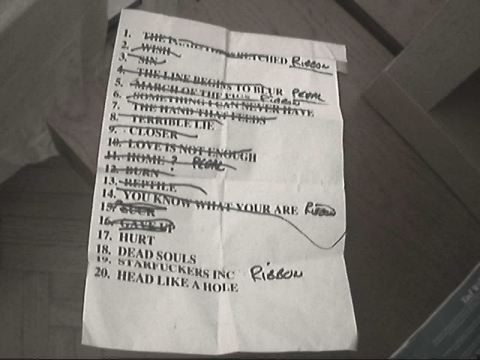 1. THE WRETCHED RIBBON
2. WISH
3. SIN
4. THE LINE BEGINS TO BLUR PEDAL
5. MARCH OF THE PIGS RIBBON
6. SOMETHING I CAN NEVER HAVE
7. THE HAND THAT FEEDS
8. TERRIBLE LIE
9. CLOSER
10. LOVE IS NOT ENOUGH
11. HOME ? PEDAL
12. BURN
13. REPTILE
14. YOU KNOW WHAT YOUR ARE RIBBON
15. SUCK
16.
17. HURT
18. DEAD SOULS
19. STARFUCKERS INC RIBBON
20. HEAD LIKE A HOLE